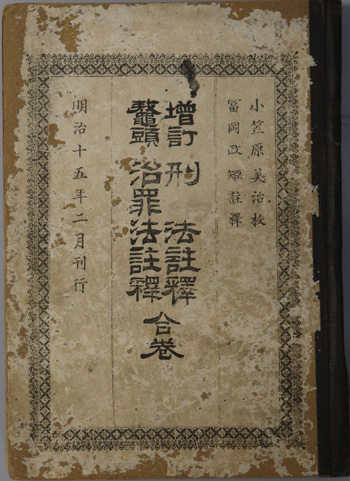 小笠原美治校
富岡政矩註釋
增訂 刑法註釋
鼇頭 治罪法註釋 合卷
明治十五年二月刊行